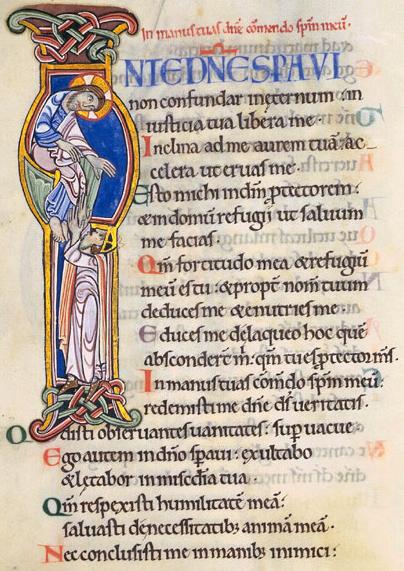 In manus tuas dñe cõmendo spm̃ meũ.
INTE DNE SPAVI
non confundar ineternum: in
iusticia tua libera me.
Inclina ad me aurem tuã: ac
celera ut eruas me.
Esto michi indm̃ ptectorem:
& in domũ refugii ut saluum
me facias.
Qm̃ fortitudo mea & refugiũ
meũ es tu: & ppt nom̃ tuum
deduces me & enutries me.
Educes me de laqueo hoc quẽ
absconder̃t m̃: qm̃ tu es ptector m̃s.
In manus tuas com̃do spm̃ meũ:
redemisti me dñe ds̃ ueritatis.
Odisti obseruantes uanitates: supuacue.
Ego autem in dño spaui: exultabo
& letabor in mis̃cdia tua.
Qm̃ respexisti humilitatẽ meã:
saluasti de necessitatib; animã meã.
Nec conclusisti me in manib; inimici: